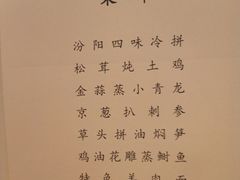 菜单
汾阳四味冷拼
松茸炖土鸡
金蒜蒸小青龙
京葱扒刺参
草头拼油焖笋
鸡油花雕蒸鲥鱼